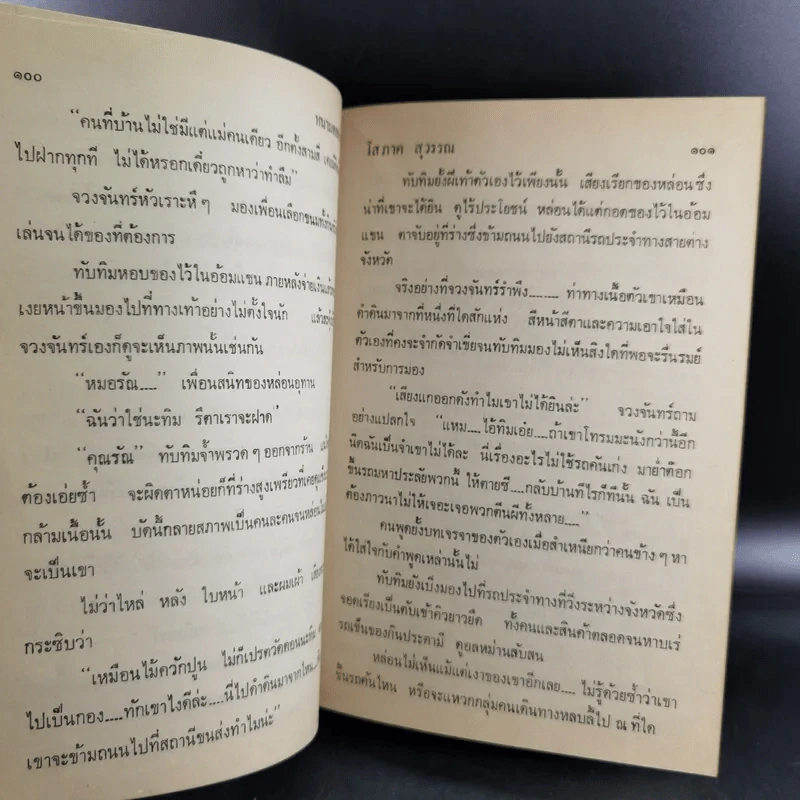 ๑๐๐
“คนที่บ้านไม่ใช่มีแต่แม่คนเดียว อีกตั้งสามสี่
ไปฝากทุกที ไม่ได้หรอกเดี๋ยวถูกหาว่าทำลืม”
จวงจันทร์หัวเราะหึ ๆ มองเพื่อนเลือกขนม
เล่นจนได้ของที่ต้องการ
ทับทิมหอบของไว้ในอ้อมแขน ภายหลังจ่ายเงิน
เงยหน้าขึ้นมองไปที่ทางเท้าอย่างไม่ตั้งใจนัก
จวงจันทร์เองก็ดูจะเห็นภาพนั้นเช่นกัน
“หมอรัณ....” เพื่อนสนิทของหล่อนอุทาน
“ฉันว่าใช่นะทิม รึตาเราจะฝาด”
“คุณรัณ” ทับทิมจ้ำพรวด ๆ ออกจากร้าน
ต้องเอ่ยซ้ำ จะผิดตาหน่อยก็ที่ร่างสูงเพรียวที่เคย
กล้ามเนื้อนั้น บัดนี้กลายสภาพเป็นคนละคนจนหล่อน
จะเป็นเขา
ไม่ว่าไหล่ หลัง ใบหน้า และผมเผ้า
กระซิบว่า
“เหมือนไม้ควักปูน ไม่ก็เปรตวัดดอนนะทิม
ไปเป็นกอง....ทักเขาไงดีล่ะ....นี่ไปดำดินมาจากไหน
เขาจะข้ามถนนไปที่สถานีขนส่งทำไมน่ะ”
โสภาค สุวรรณ ๑๐๑
ทับทิมยั้งฝีเท้าตัวเองไว้เพียงนั้น เสียงเรียกของหล่อนซึ่ง
น่าที่เขาจะได้ยิน ดูไร้ประโยชน์ หล่อนได้แต่กอดของไว้ในอ้อม
แขน ตาจับอยู่ที่ร่างซึ่งข้ามถนนไปยังสถานีรถประจำทางสายต่าง
จังหวัด
จริงอย่างที่จวงจันทร์รำพึง........ ท่าทางเนื้อตัวเขาเหมือน
ดำดินมาจากที่หนึ่งที่ใดสักแห่ง สีหน้าสีตาและความเอาใจใส่ใน
ตัวเองที่คงจะจำกัดจำเขี่ยจนทับทิมมองไม่เห็นสิ่งใดที่พอจะรื่นรมย์
สำหรับการมอง
“เสียงแกออกดังทำไมเขาไม่ได้ยินล่ะ” จวงจันทร์ถาม
อย่างแปลกใจ “แหม....ไอ้ทิมเอ๋ย....ถ้าเขาโทรมมะนังกว่านี้อีก
นิดฉันเป็นจำเขาไม่ได้ละ นี่เรื่องอะไรไม่ใช้รถคันเก่ง มาย่ำต๊อก
ขึ้นรถมหาประลัยพวกนี้ ให้ตายซี....กลับบ้านทีไรก็ทีนั้น ฉัน เป็น
ต้องภาวนาไม่ให้เจอะเจอพวกตีนผีทั้งหลาย....”
คนพูดยั้งบทเจรจาของตัวเองเมื่อสำเหนียกว่าคนข้าง ๆ หา
ได้ใส่ใจกับคำพูดเหล่านั้นไม่
ทับทิมยังเบิ่งมองไปที่รถประจำทางที่วิ่งระหว่างจังหวัดซึ่ง
จอดเรียงเป็นตับเข้าคิวยาวยืด ทั้งคนและสินค้าตลอดจนหาบเร่
รถเข็นของกินประดามี ดูอลหม่านสับสน
หล่อนไม่เห็นแม้แต่เงาของเขาอีกเลย.... ไม่รู้ด้วยซ้ำว่าเขา
ขึ้นรถคันไหน หรือจะแหวกกลุ่มคนเดินทางหลบลี้ไป ณ ที่ใด